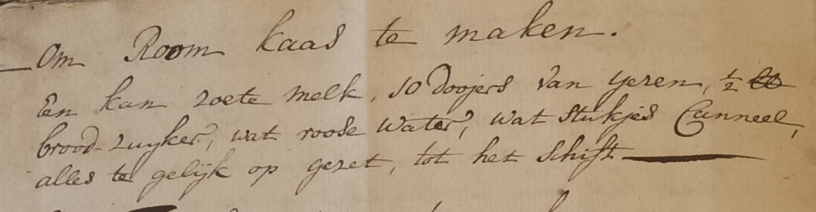 Om Room kaas te maken.
Een kan zoete melk, 10 doojers van yeren, ½ ℔
brood-zuyker, wat roose water, wat stukjes Canneel,
alles te gelijk op gezet, tot het schift